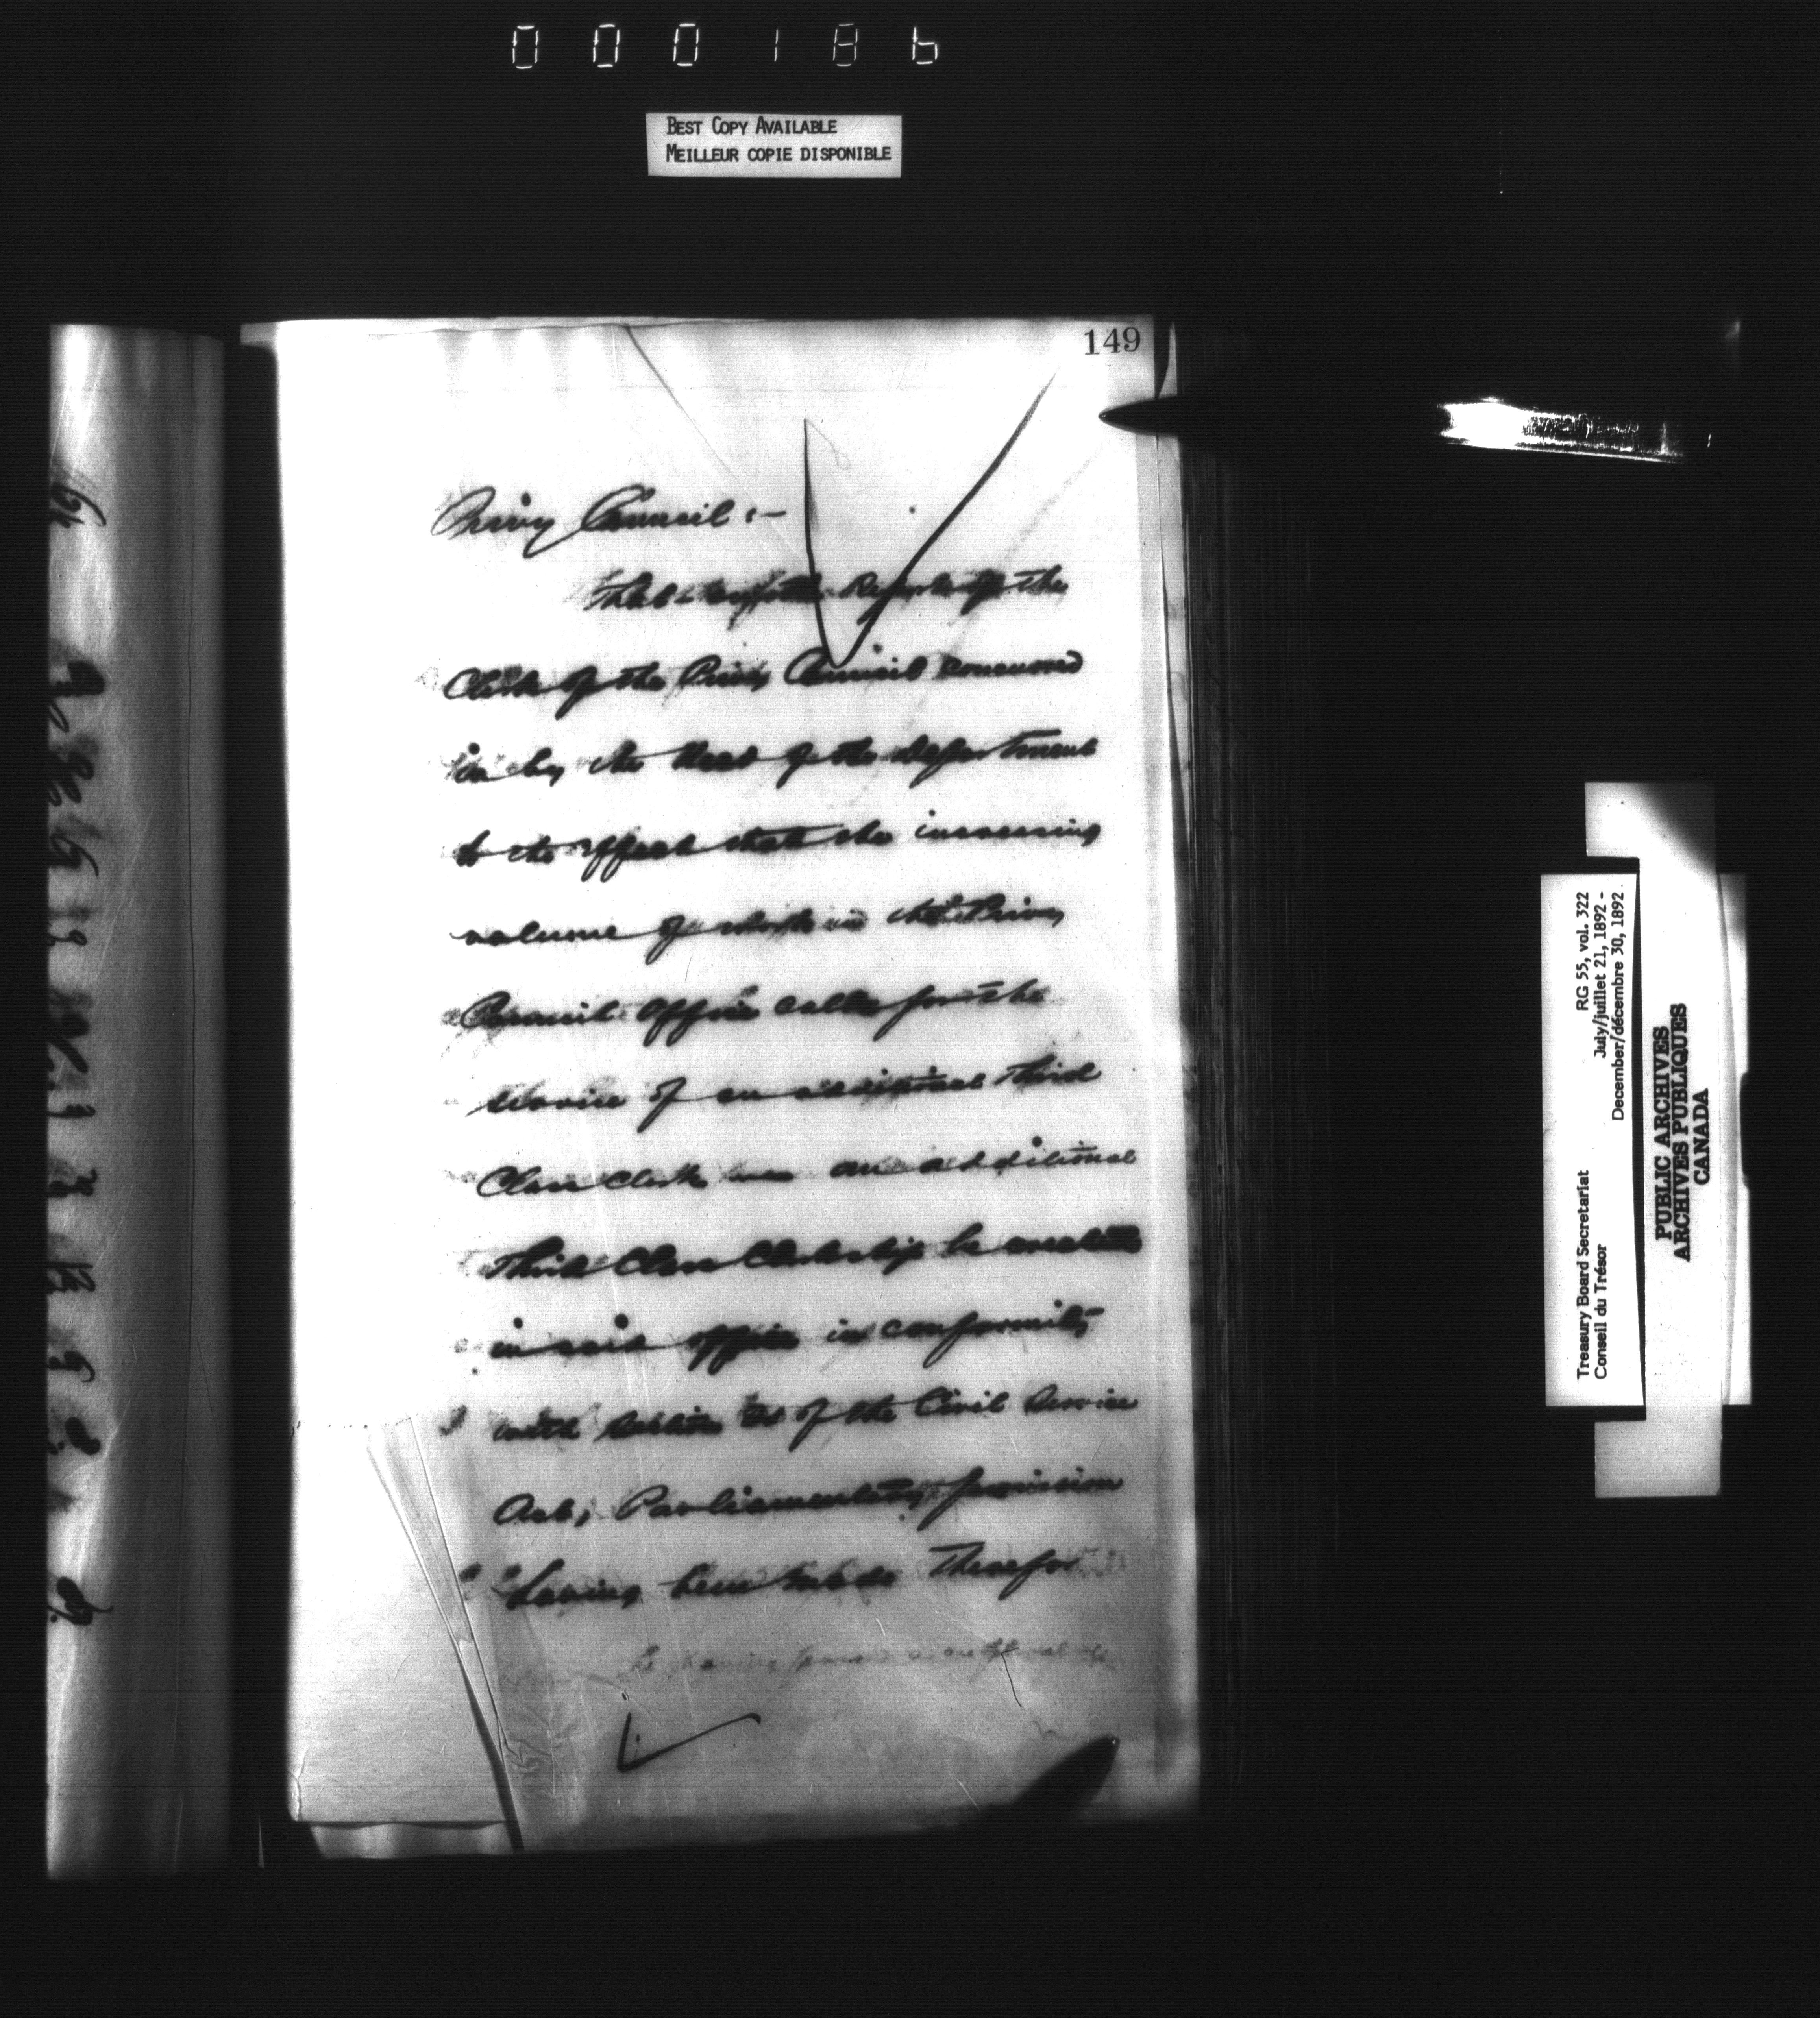 000186
BEST COPY AVAILABLE
MEILLEUR COPIE DISPONIBLE
149
Privy Council :-
That upon the Report of the
Clerk of the Privy Council concurred
in by the Head of the Department
to the effect that the increasing
volume of work in the Privy
Council Office calls for the
service of an additional Third
Class Clerk an additional
Third Class Clerkship be created
in said office in conformity
with Section of the Civil Service
Act, Parliamentary provision
having been made therefor
Treasury Board Secretariat RG 55, vol. 322
Conseil du Trésor July/juillet 21, 1892 -
December/décembre 30, 1892
PUBLIC ARCHIVES
ARCHIVES PUBLIQUES
CANADA